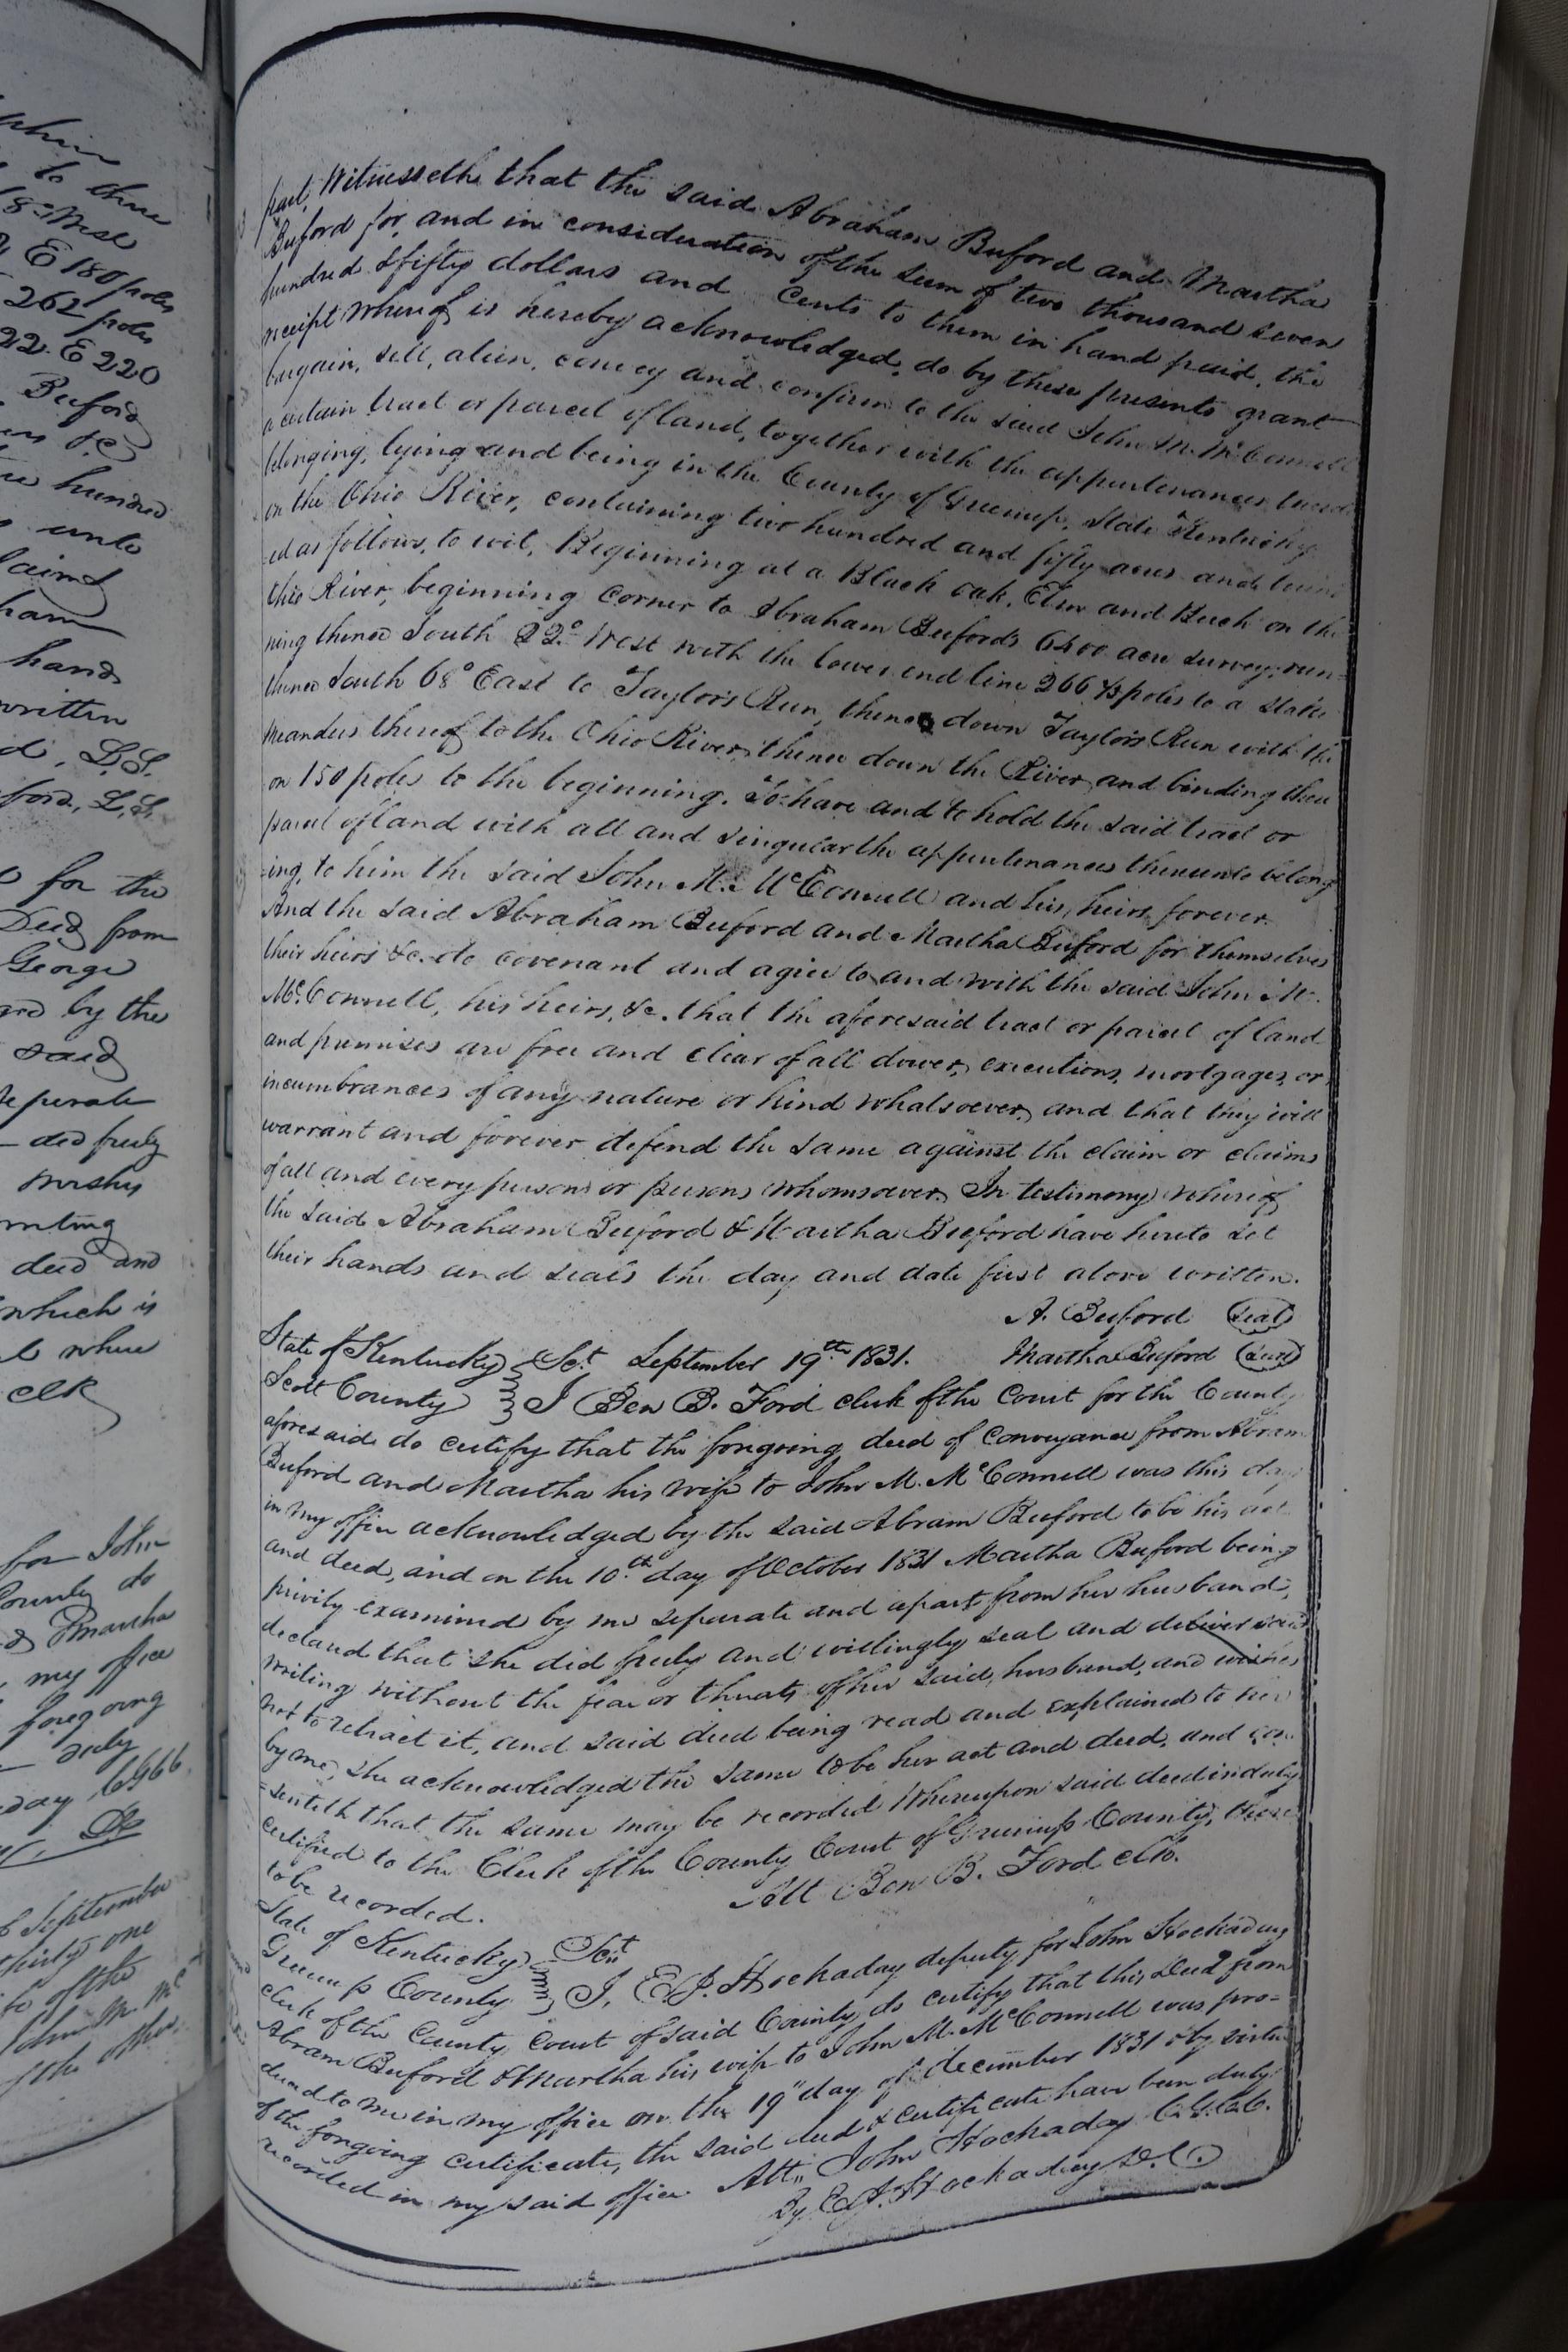 phin
to thence
18° West
E 180 poles
262 poles
22. E 220
Buford
&c
hundred
unto
claims
ham
hands
written
d, L.S.
ford, L.S.
for the
Deed from
George
ard by the
said
seperate
ded freely
wishes
writing
deed and
which is
l where
clk
for John
County do
& Martha
my office
foregoing
duly
day
of September
thirty one
of the
John M. Mc
of the other
part, Witnesseth that the said Abraham Buford and Martha
Buford for, and in consideration of the sum of two thousand seven
hundred & fifty dollars and cents to them in hand paid, the
receipt whereof is hereby acknowledged, do by these presents grant
bargain, sell, alien, convey and confirm to the said John M. McConnell
a certain tract or parcel of land, together with the appurtenances
belonging, lying and being in the County of Greenup, State Kentucky
on the Ohio River, containing two hundred and fifty acres and bound
ed as follows, to wit, Beginning at a Black oak, Elm and Buch on the
Ohio River, beginning corner to Abraham Buford's 6400 acre survey, run=
ning thence South 22° West with the lower end line 266 ⅔ poles to a stake
thence South 68° East to Taylor's Run, thence down Taylor's Run with the
meanders thereof to the Ohio River, thence down the River and binding there
on 150 poles to the beginning. To have and to hold the said tract or
parcel of land with all and singular the appurtenances thereunto belong
=ing, to him the said John M. McConnell and his, heirs forever.
And the said Abraham Buford and Martha Buford for themselves
their heirs &c. do covenant and agree to and with the said John M.
McConnell, his heirs, &c. that the aforesaid tract or parcel of land
and premises are free and clear of all dower, executions, mortgages, or
incumbrances of any nature or kind whatsoever, and that they will
warrant and forever defend the same against the claim or claims
of all and every persons or persons whomsoever. In testimony whereof
the said Abraham Buford & Martha Buford have hereto set
their hands and seals the day and date first above written.
A. Buford (seal)
State of Kentucky Sct. September 19th 1831. Martha Buford (seal)
Scott County I Ben B. Ford clerk of the Court for the County
aforesaid do certify that the foregoing deed of conveyance from Abram
Buford and Martha his wife to John M. McConnell was this day
in my office acknowledged by the said Abram Buford to be his act
and deed, and on the 10th day of October 1831 Martha Buford being
privily examined by me separate and apart from her husband,
declared that she did freely and willingly seal and deliver said
writing without the fear or threats of her said, husband, and wishes
not to retract it, and said deed being read and explained to her
by me, she acknowledged the same to be her act and deed, and con
=senteth that the same may be recorded Whereupon said deed is duly
certified to the Clerk of the County Court of Greenup County, there
to be recorded. Att Ben B. Ford clk.
State of Kentucky Sct
Greenup County I, E. J. Hockaday deputy for John Hockaday
clerk of the County Court of said County do certify that this Deed from
Abram Buford & Martha his wife to John M. McConnell was pro=
duced to me in my office on the 19" day of december 1831 & by virtue
of the forgoing certificate, the said deed & certificate have been duly
recorded in my said office. Att,, John Hockaday C.G.C.C.
By E. J. Hockaday D.C.